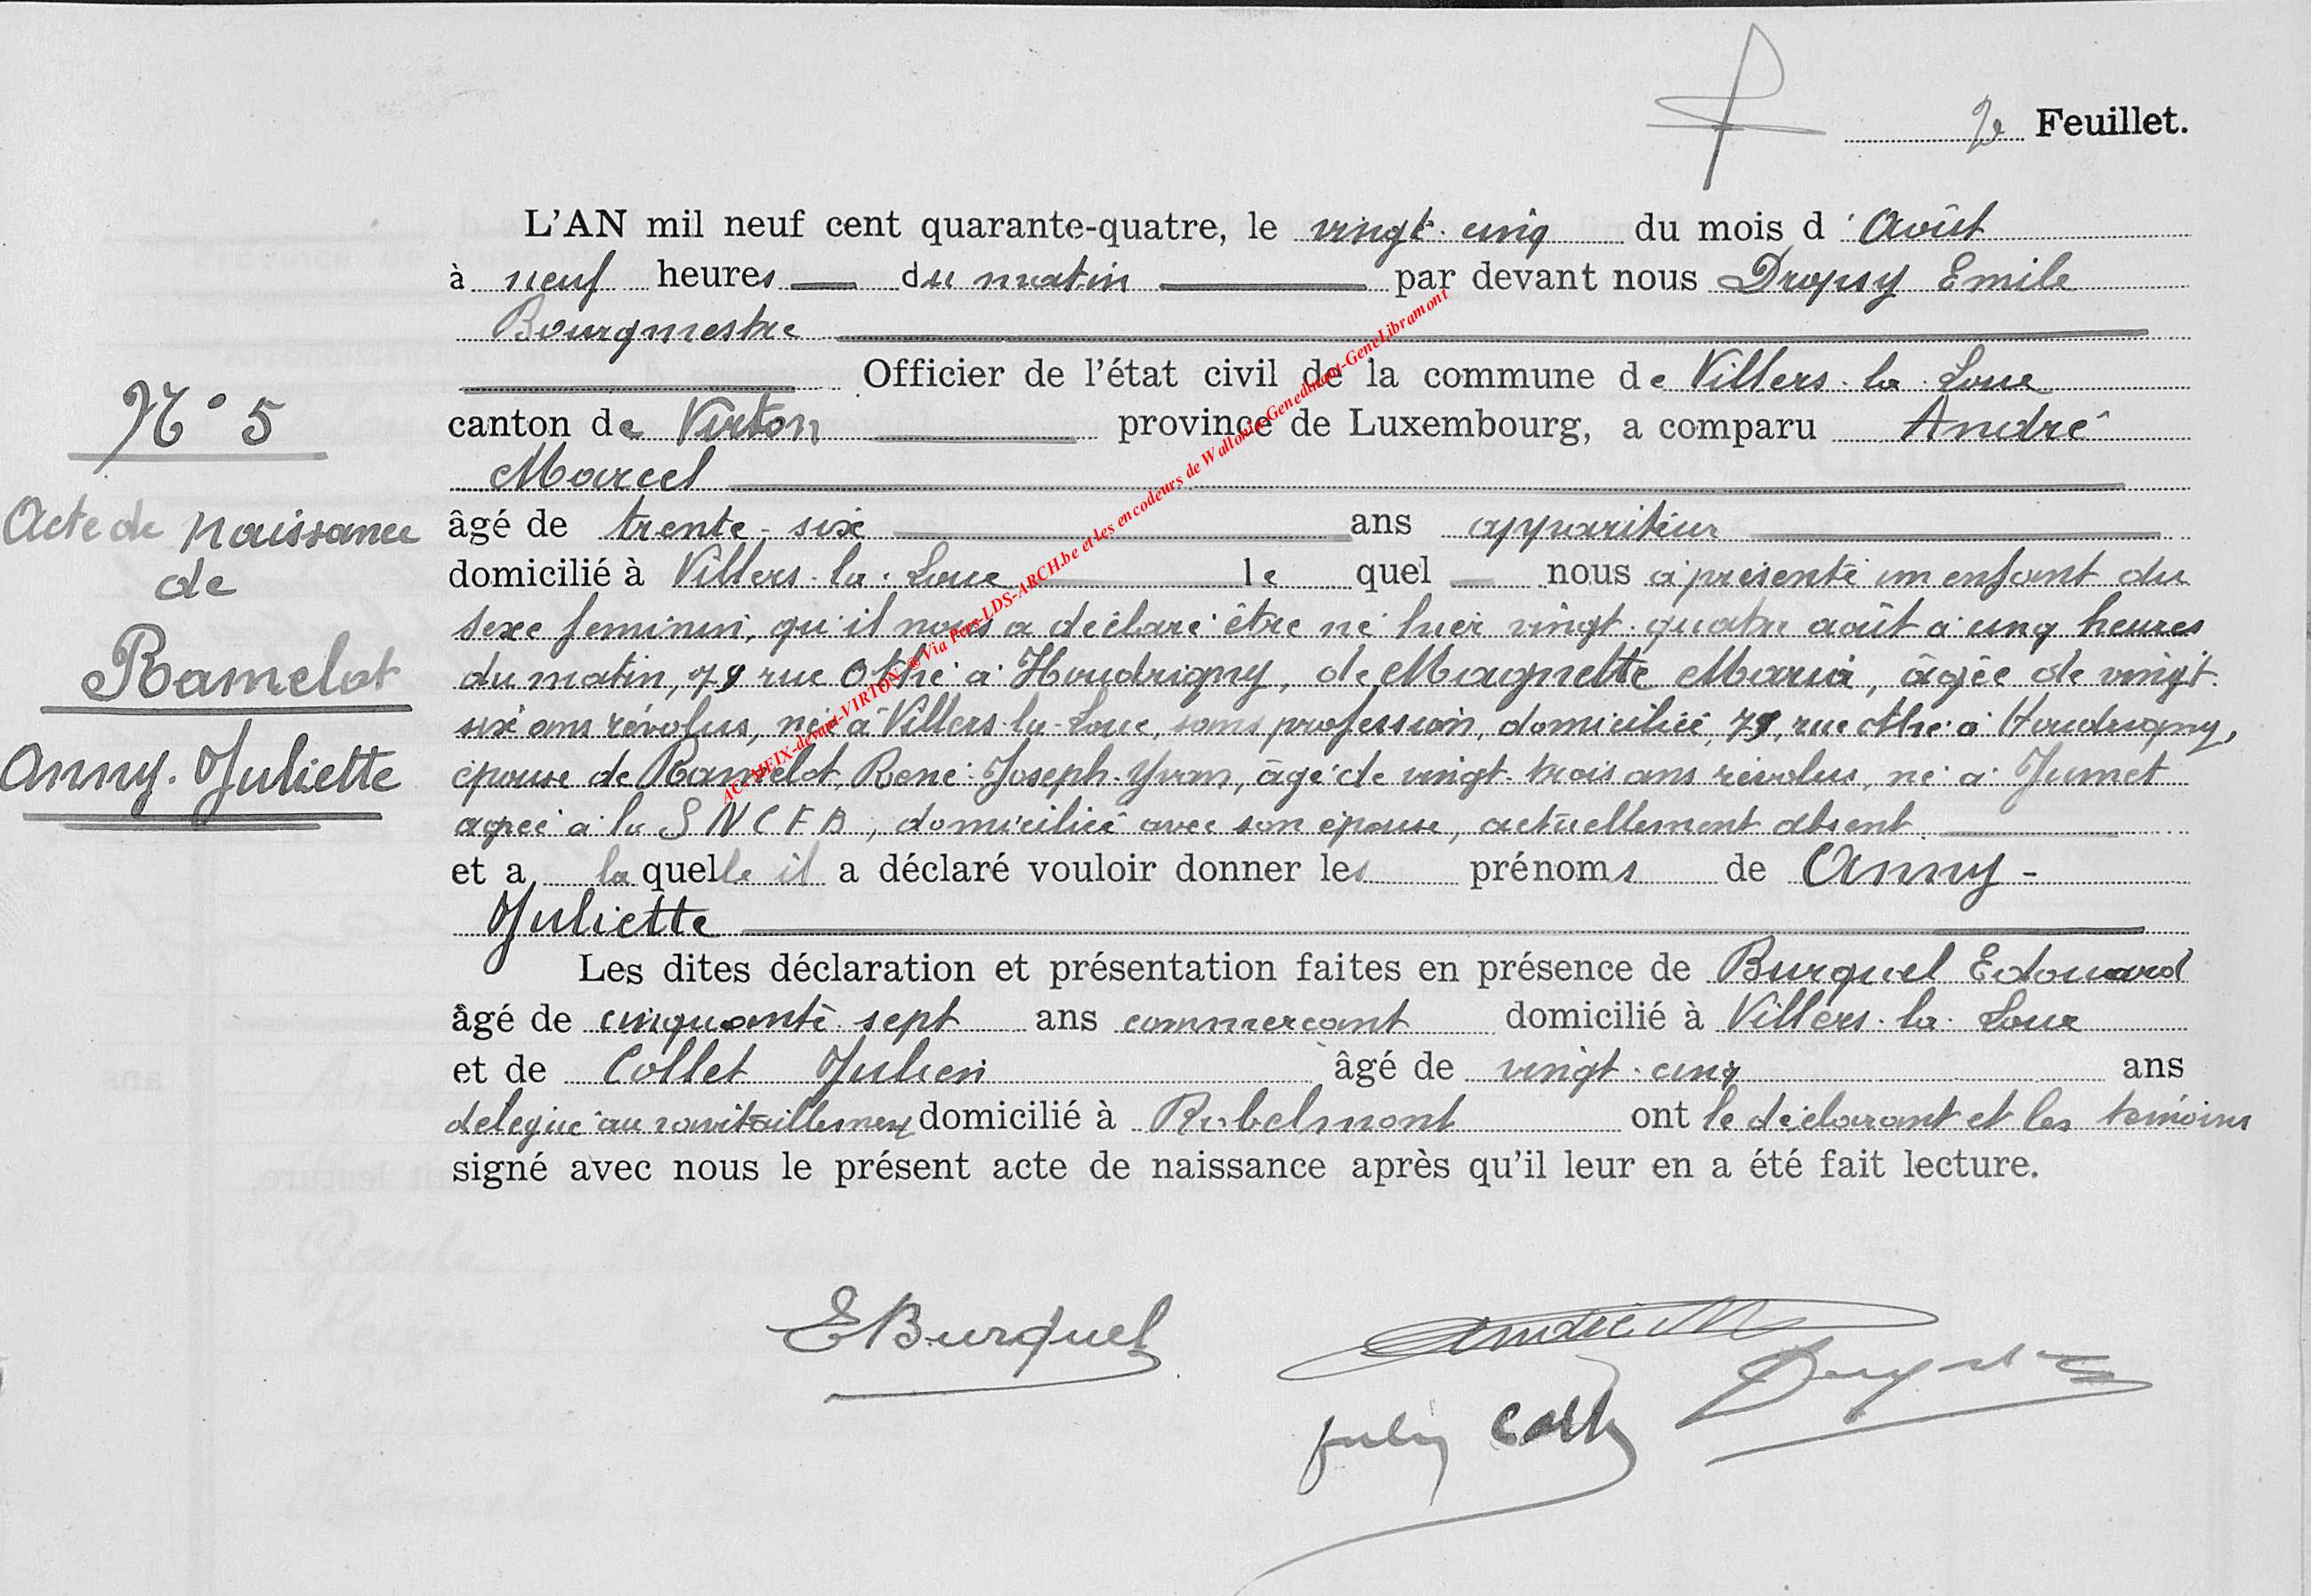 2e Feuillet.
L'AN mil neuf cent quarante-quatre, le vingt-cinq du mois d'Août
à neuf heures du matin par devant nous Dropsy Emile
Bourgmestre
Officier de l'état civil de la commune de Villers-la-Loue
canton de Virton province de Luxembourg, a comparu André
Marcel
âgé de trente-six ans appariteur
domicilié à Villers-la-Loue lequel nous a présenté un enfant du
sexe feminin, qu'il nous a déclaré être né hier vingt-quatre août à cinq heures
du matin, 79 rue Othé à Houdrigny, de Magnette Maria, âgée de vingt
six ans révolus, née à Villers-la-Loue, sans profession, domiciliée, 79, rue Othé à Houdrigny,
épouse de Ramelot, René-Joseph-Yvan, âgé de vingt-trois ans révolus, né à Jumet
agréé à la SNCFB, domicilié avec son épouse, actuellement absent.
et a laquelle il a déclaré vouloir donner les prénoms de Anny-
Juliette
Les dites déclaration et présentation faites en présence de Burquel Edouard
âgé de cinquante sept ans commerçant domicilié à Villers-la-Loue
et de Collet Julien âgé de vingt-cinq ans
délégué au ravitaillement domicilié à Robelmont ont le déclarant et les témoins
signé avec nous le présent acte de naissance après qu'il leur en a été fait lecture.
N° 5
Acte de naissance
de
Ramelot
Anny-Juliette
AC-MEIX-devant-VIRTON @ Via Pers-LDS-ARCH.be et les encodeurs de Wallonia-Genedinant-GeneLibramont
EBurquel
André M
Dropsy
Julien Collet